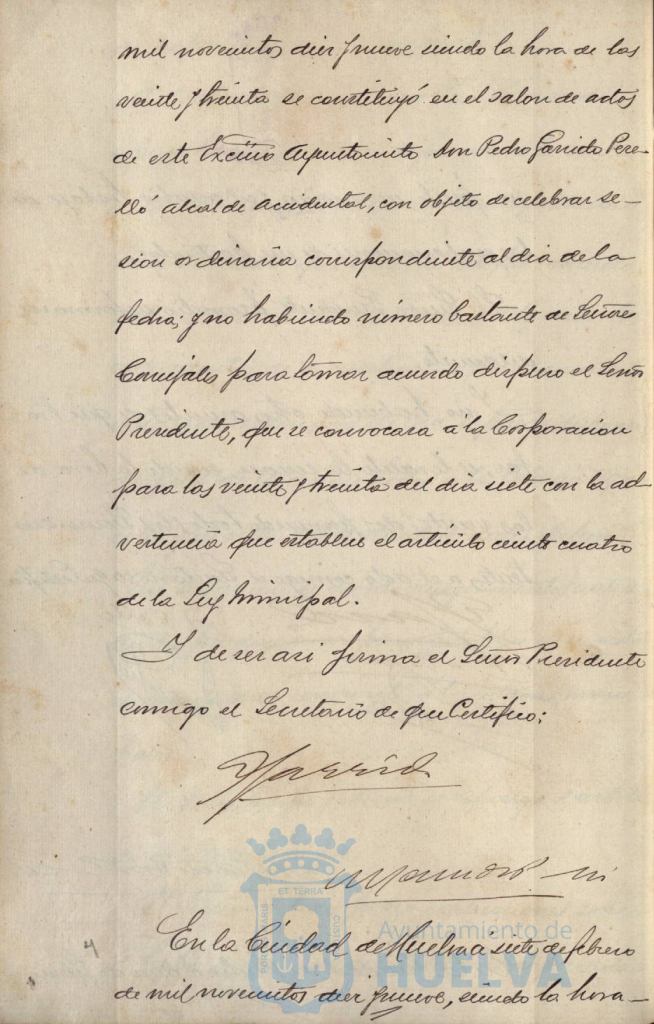 mil novecientos diez y nueve siendo la hora de las
veinte y treinta se constituyó en el salon de actos
de este Excmo Ayuntamiento Don Pedro Garrido Pere-
lló alcalde accidental, con objeto de celebrar se-
sion ordinaria correspondiente al dia de la
fecha; y no habiendo número bastante de Señores
Concejales para tomar acuerdo dispuso el Señor
Presidente, que se convocara á la Corporacion
para las veinte y treinta del dia siete con la ad-
vertencia que establece el artículo ciento cuatro
de la Ley Municipal.
Y de ser asi firma el Señor Presidente
conmigo el Secretario de que Certifico;
Garrido
ET TERRA
Ayuntamiento de
HUELVA
En la Ciudad de Huelva á siete de febrero
de mil novecientos diez y nueve, siendo la hora-
4